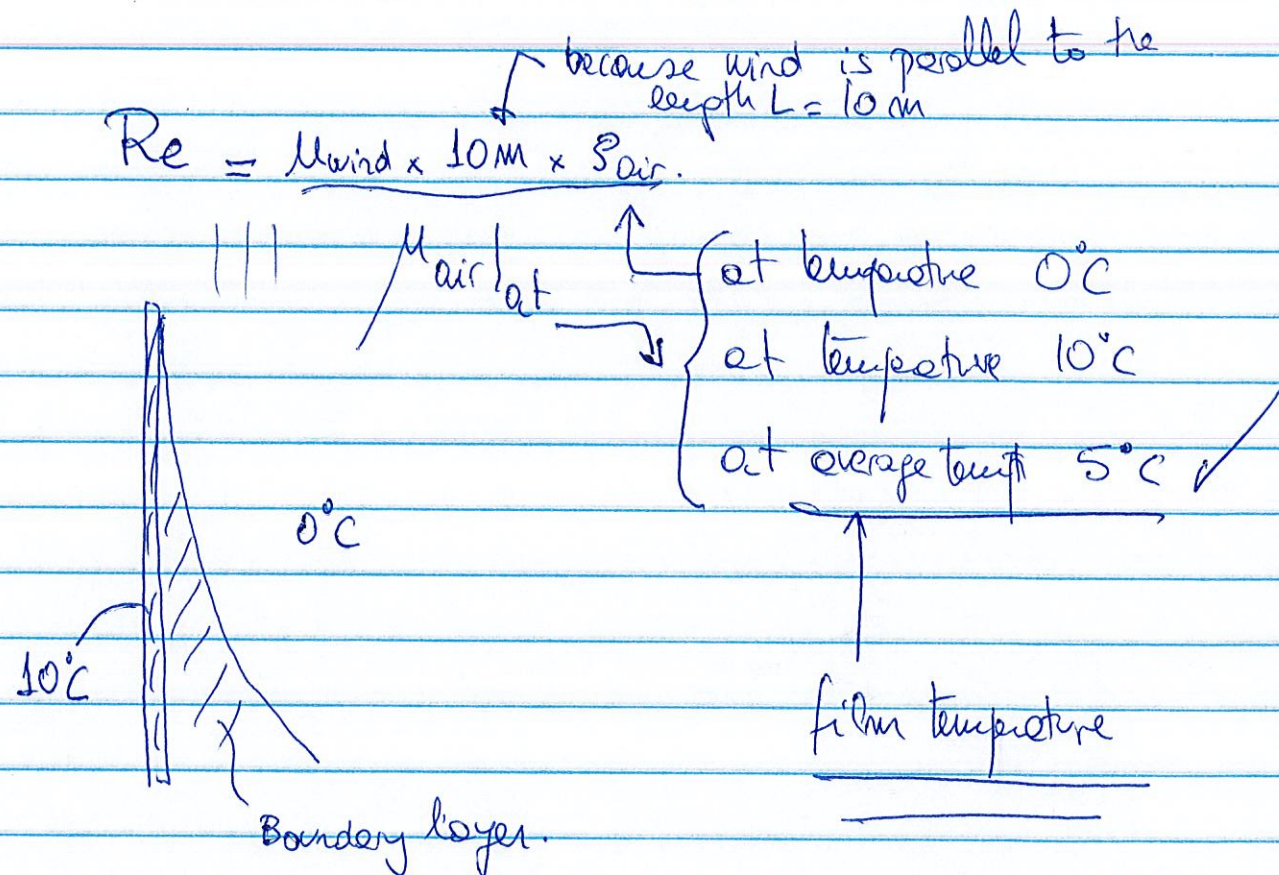 because wind is parallel to the
length L = 10 m
Re = uwind x 10m x ρair.
μair|at
at temperature 0°C
at temperature 10°C
at average temp 5°C ✓
0°C
10°C
film temperature
Boundary layer.